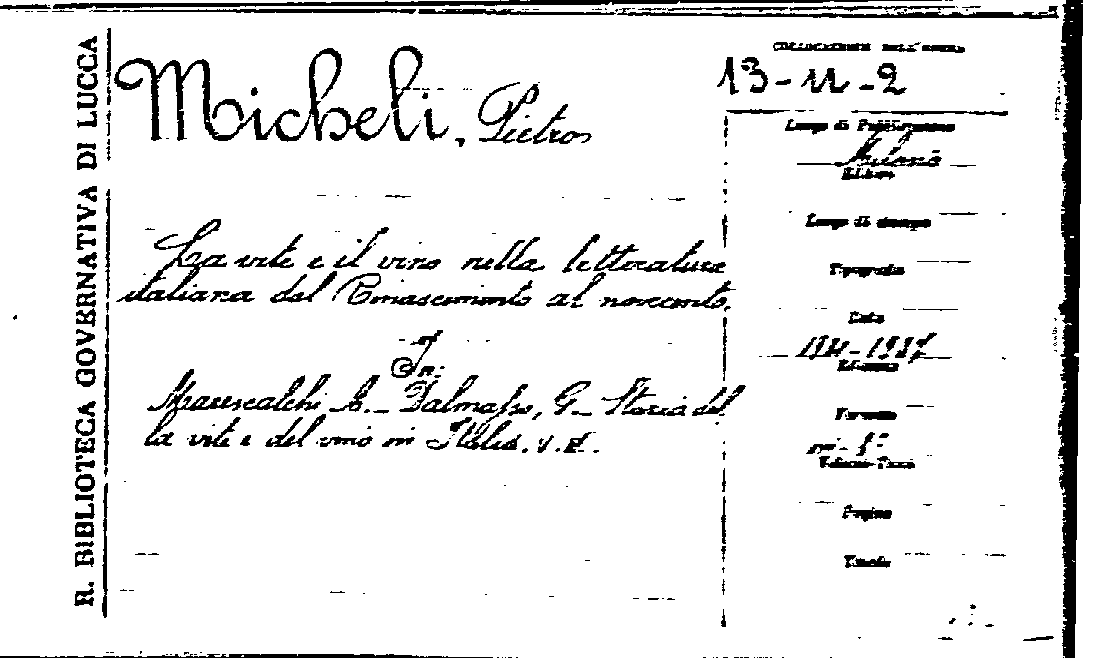 R. BIBLIOTECA GOVERNATIVA DI LUCCA
Micheli, Pietro
La vite e il vino nella letteratura
italiana dal Rinascimento al novecento.
In:
Marescalchi A. - Dalmasso, G. - Storia del
la vite e del vino in Italia. v.
COLLOCAZIONE DELL'OPERA
13-11-2
Luogo di Pubblicazione
Milano
Editore
Luogo di stampa
Tipografia
Data
1931-1937
Edizione
Formato
in-8°
Volume-Tomo
Pagine
Tavole